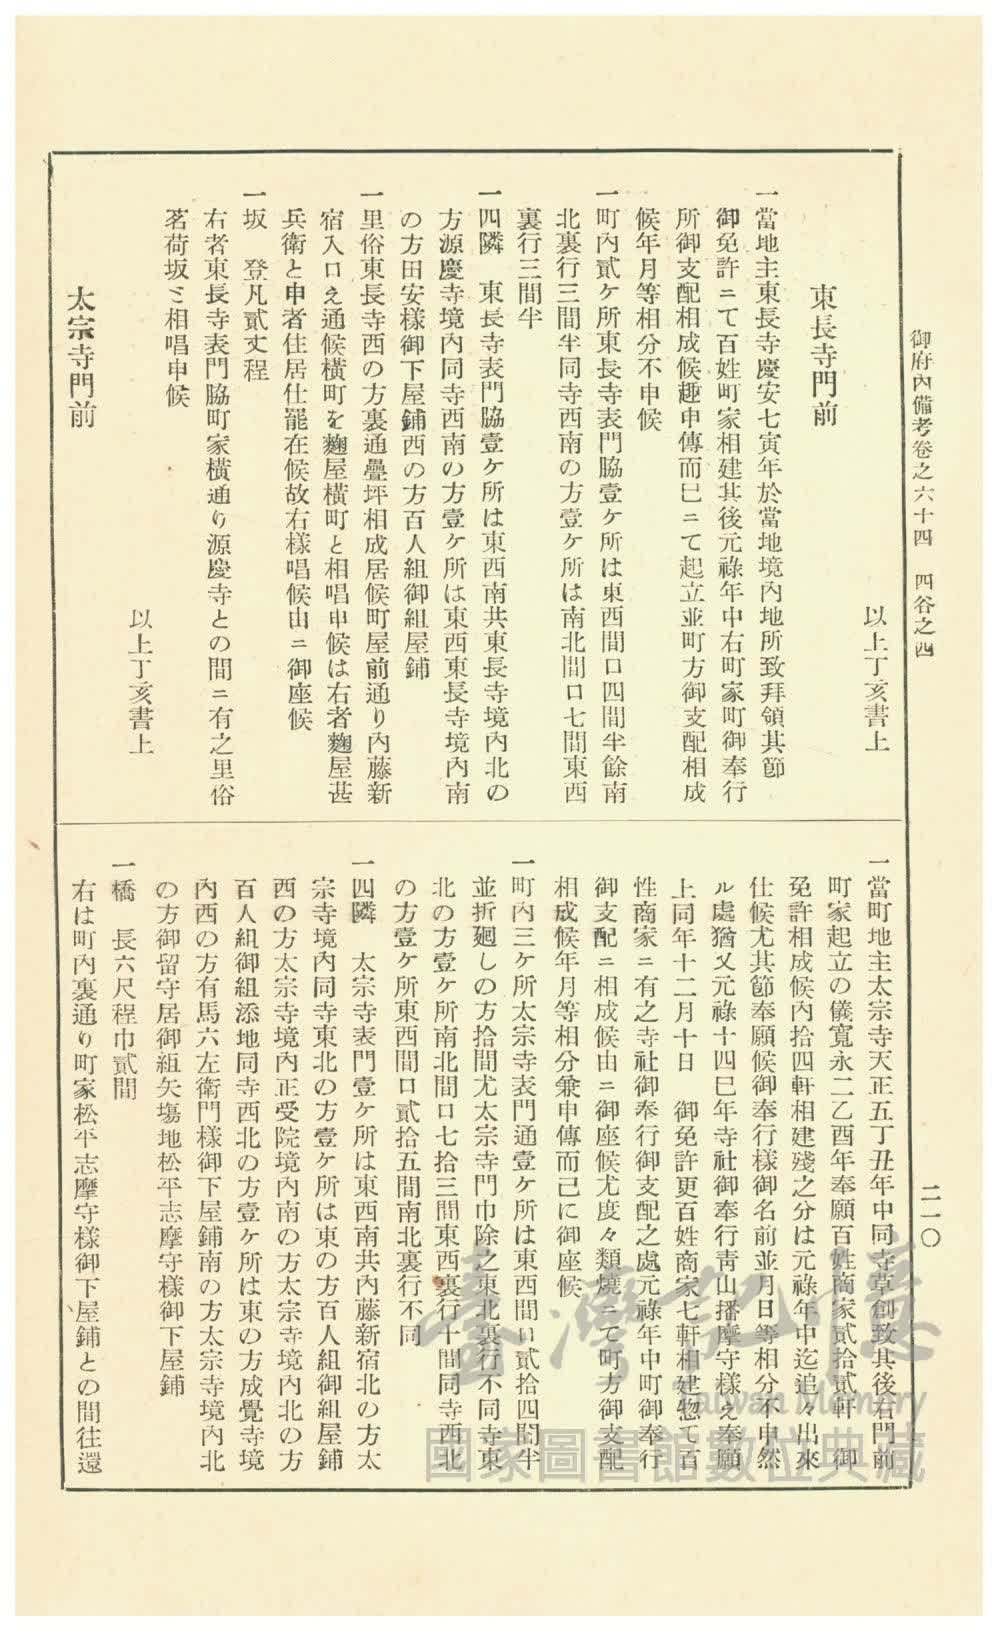 御府內備考卷之六十四　四谷之四
二一〇
以上丁亥書上
東長寺門前
一當地主東長寺慶安七寅年於當地境內地所致拜領其節
御免許ニて百姓町家相建其後元祿年中右町家町御奉行
所御支配相成候趣申傳而巳ニて起立並町方御支配相成
候年月等相分不申候
一町內貳ケ所東長寺表門脇壹ケ所は東西間口四間半餘南
北裏行三間半同寺西南の方壹ケ所は南北間口七間東西
裏行三間半
一四隣　東長寺表門脇壹ケ所は東西南共東長寺境內北の
方源慶寺境內同寺西南の方壹ケ所は東西東長寺境內南
の方田安樣御下屋鋪西の方百人組御組屋鋪
一里俗東長寺西の方裏通疊坪相成居候町屋前通り內藤新
宿入口え通候橫町を麴屋橫町と相唱申候は右者麴屋甚
兵衛と申者住居仕罷在候故右樣唱候由ニ御座候
一坂　登凡貳丈程
右者東長寺表門脇町家橫通り源慶寺との間ニ有之里俗
茗荷坂ミ相唱申候
以上丁亥書上
太宗寺門前
一當町地主太宗寺天正五丁丑年中同寺草創致其後右門前
町家起立の儀寬永二乙酉年奉願百姓商家貳拾貳軒　御
免許相成候內拾四軒相建殘之分は元祿年中迄追々出來
仕候尤其節奉願候御奉行樣御名前並月日等相分不申然
ル處猶又元祿十四巳年寺社御奉行靑山播摩守樣え奉願
上同年十二月十日　御免許更百姓商家七軒相建惣て百
性商家ニ有之寺社御奉行御支配之處元祿年中町御奉行
御支配ニ相成候由ニ御座候尤度々類燒ニて町方御支配
相成候年月等相分兼申傳而己に御座候
一町內三ケ所太宗寺表門通壹ケ所は東西間口貳拾四間半
並折廻しの方拾間尤太宗寺門巾除之東北裏行不同寺東
北の方壹ケ所南北間口七拾三間東西裏行十間同寺西北
の方壹ケ所東西間口貳拾五間南北裏行不同
一四隣　太宗寺表門壹ケ所は東西南共內藤新宿北の方太
宗寺境內同寺東北の方壹ケ所は東の方百人組御組屋鋪
西の方太宗寺境內正受院境內南の方太宗寺境內北の方
百人組御組添地同寺西北の方壹ケ所は東の方成覺寺境
內西の方有馬六左衛門樣御下屋鋪南の方太宗寺境內北
の方御留守居御組矢塲地松平志摩守樣御下屋鋪
一橋　長六尺程巾貳間
右は町內裏通り町家松平志摩守樣御下屋鋪との間往還
臺灣記憶
Taiwan Memory
國家圖書館數位典藏